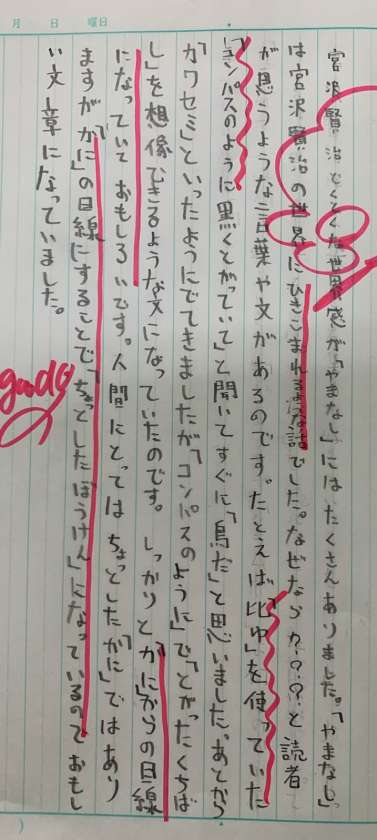 月 日 曜日
宮沢賢治どくとくな世界感が「やまなし」にはたくさんありました。「やまなし」
は宮沢賢治の世界にひきこまれるような話でした。なぜなら?・?・?・?と読者
が思うような言葉や文があるのです。たとえば「比ゆ」を使っていた
「コンパスのように黒くとがっていて」と聞いてすぐに「鳥だ」と思いました。あとから
「カワセミ」といったようにでてきましたが「コンパスのように」で「とがったくちば
し」を想像できるような文になっていたのです。しっかりと「かに」からの目線
になっていておもしろいです。人間にとってはちょっとした「かに」ではあり
ますが「かに」の目線にすることで「ちょっとしたぼうけん」になっているのでおもし
い文章になっていました。
good